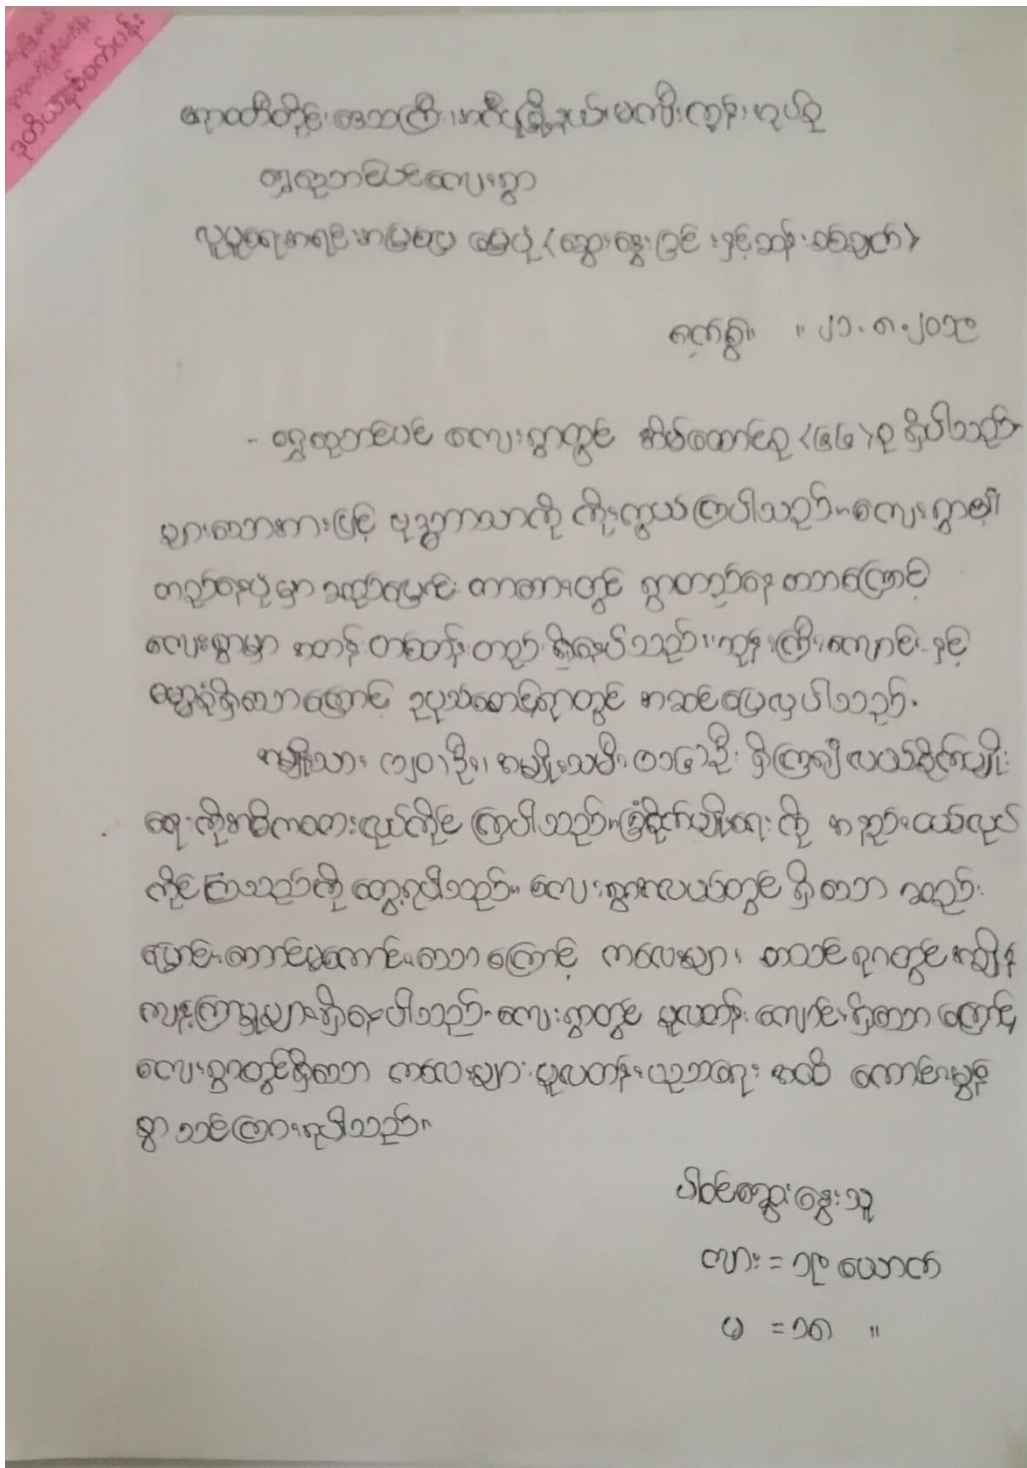 ဒုတိယနှစ်ဝက်ပန်း
ဧရာဝတီတိုင်းဒေသကြီး၊ အင်္ဂပူမြို့နယ်၊ မကျီးကုန်းအုပ်စု
ရွှေဘုံသာပင်ကျေးရွာ
လူမှုရေးအရင်းအမြစ်ပြ မြေပုံ (ဆွေးနွေးခြင်းနှင့်ဆန်းစစ်ချက်)
ရက်စွဲ။ ။ ၂၁.၈.၂၀၁၉
- ကျေးရွာတွင် အိမ်ထောင်စု (၆၄) စု ရှိပါသည်။
များသောအားဖြင့် ဗုဒ္ဓဘာသာကို ကိုးကွယ်ကြပါသည်။ ကျေးရွာ၏
တည်နေပုံမှာ ရထည်မြောင်း ဘာဘားတွင် ရွာတည်နေ သောကြောင့်
ကျေးရွာမှာ အတန်းတစ်တန်းတည်း ရှိနေပါသည်။ ဘုန်းကြီးကျောင်း နှင့်
ဓမ္မာရုံရှိသောကြောင့် ဥပုသ်စောင့်ရာတွင် အဆင်ပြေလှပါသည်။
အမျိုးသား ၁၂၀ ဦး၊ အမျိုးသမီး ၁၁၆ ဦး ရှိကြ၍ လယ်စိုက်ပျိုး
ရေးကိုအဓိကထားလုပ်ကိုင် ကြပါသည်။ ခြံစိုက်ပျိုးရေး ကို အနည်းငယ်လုပ်
ကိုင်ကြသည်ကို တွေ့ရပါသည်။ ကျေးရွာအလယ်တွင် ရှိသော
မြောင်းဘောင်မကောင်းသောကြောင့် ကလေးများ အသင်
ကျန့်ကြာမှုများရှိနေပါသည်။ ကျေးရွာတွင် မူလတန်းကျောင်းရှိသောကြောင့်
ကျေးရွာတွင်ရှိသော ကလေးများ မူလတန်းပညာရေး အထိ ကောင်းမွန်
စွာ သင်ကြားရပါသည်။
ပါဝင်ဆွေးနွေးသူ
ကျား = ၁၉ ယောက်
မ = ၁၈ "